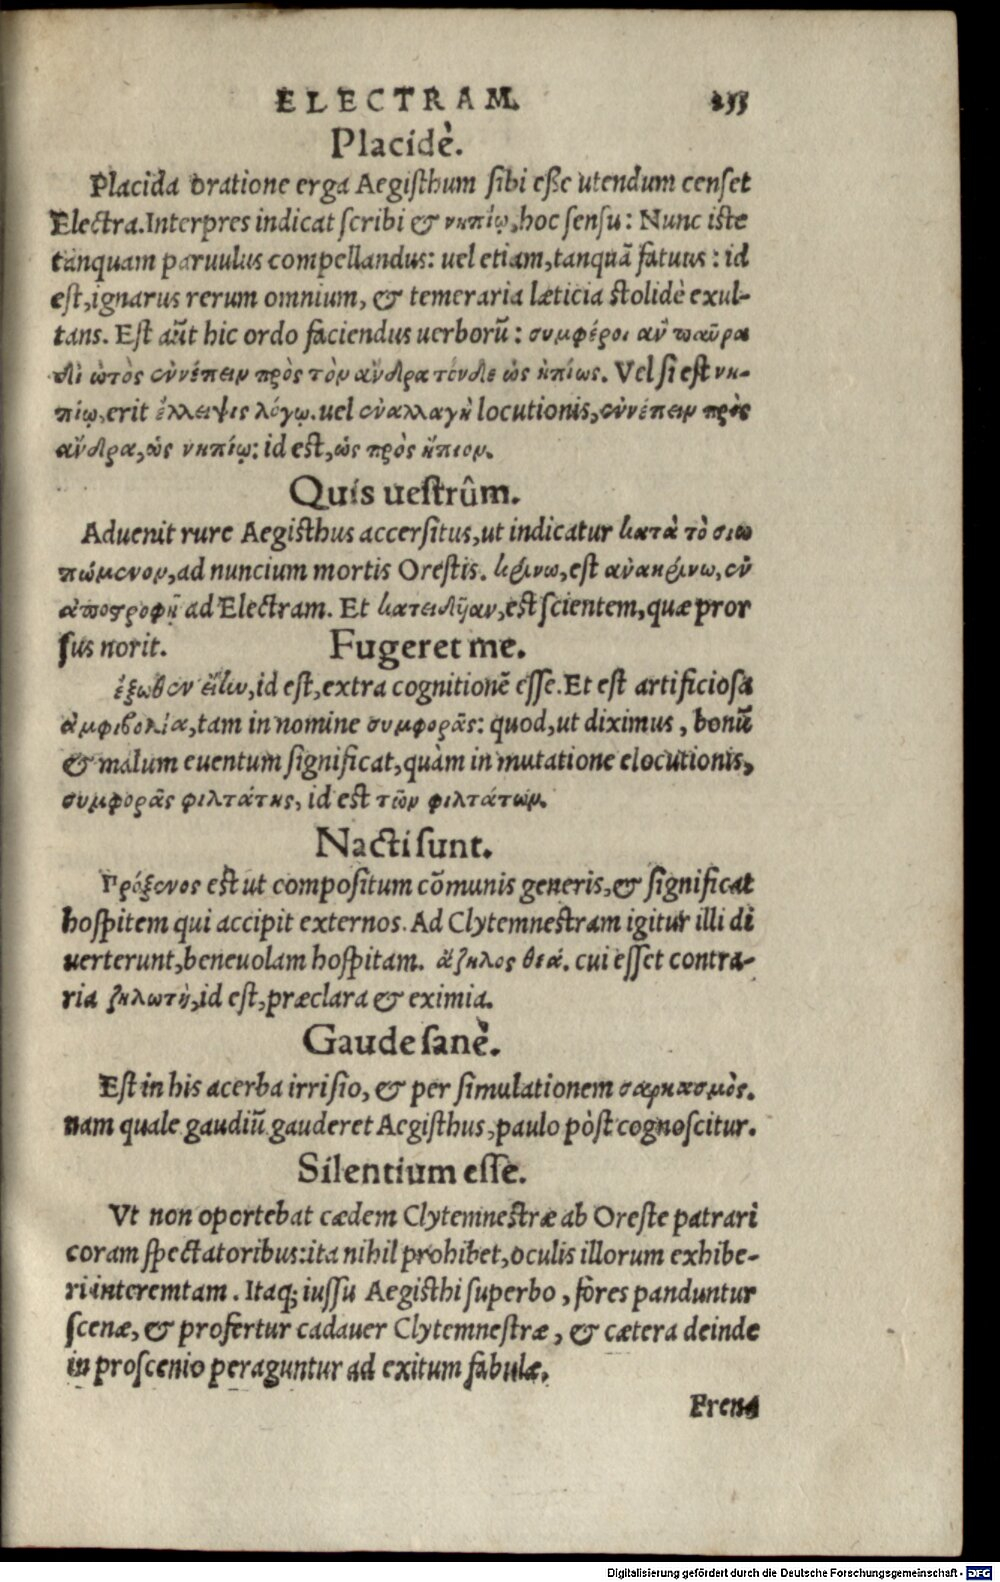 ELECTRAM. 233
Placidè.
Placida oratione erga Aegisthum sibi esse utendum censet
Electra. Interpres indicat scribi & νηπίῳ, hoc sensu: Nunc iste
tanquam paruulus compellandus: uel etiam, tanquã fatuus: id
est, ignarus rerum omnium, & temeraria læticia stolidè exul-
tans. Est aũt hic ordo faciendus uerborũ: συμφέροι ἂν παῦρα
δι' ὠτὸς ἐννέπειν πρὸς τὸν ἄνδρα τόνδε ὡς ἠπίως. Vel si est νη-
πίῳ, erit ἔλλειψις λόγῳ. uel ἐναλλαγὴ locutionis, ἐννέπειν πρὸς
ἄνδρα, ὡς νηπίῳ: id est, ὡς πρὸς ἤπιον.
Quis uestrûm.
Aduenit rure Aegisthus accersitus, ut indicatur κατὰ τὸ σιω
πώμενον, ad nuncium mortis Orestis. κρίνω, est ἀνακρίνω, ἐν
ἀποστροφῇ ad Electram. Et κατειδῦαν, est scientem, quæ pror
sus norit. Fugeret me.
ἔξωθεν εἴην, id est, extra cognitionẽ esse. Et est artificiosa
ἀμφιβολία, tam in nomine συμφορᾶς: quod, ut diximus, bonũ
& malum euentum significat, quàm in mutatione elocutionis,
συμφορᾶς φιλτάτης, id est τῶν φιλτάτων.
Nacti sunt.
Πρόξενος est ut compositum cõmunis generis, & significat
hospitem qui accipit externos. Ad Clytemnestram igitur illi di
uerterunt, beneuolam hospitam. ἄζηλος θεά. cui esset contra-
ria ζηλωτὴ, id est, præclara & eximia.
Gaude sanè.
Est in his acerba irrisio, & per simulationem σαρκασμὸς.
nam quale gaudiũ gauderet Aegisthus, paulo pòst cognoscitur.
Silentium esse.
Vt non oportebat cædem Clytemnestræ ab Oreste patrari
coram spectatoribus: ita nihil prohibet, oculis illorum exhibe-
ri interemtam. Itaq; iussu Aegisthi superbo, fores panduntur
scenæ, & profertur cadauer Clytemnestræ, & cætera deinde
in proscenio peraguntur ad exitum fabulæ.
Frena
Digitalisierung gefördert durch die Deutsche Forschungsgemeinschaft - DFG